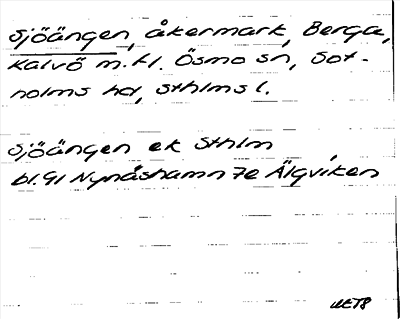 Sjöängen, åkermark, Berga,
Kalvö m.fl. Ösmo sn, Sot-
holms hd, Sthlms l.
Sjöängen ek Sthlm
bl.91 Nynäshamn 7e Älgviken